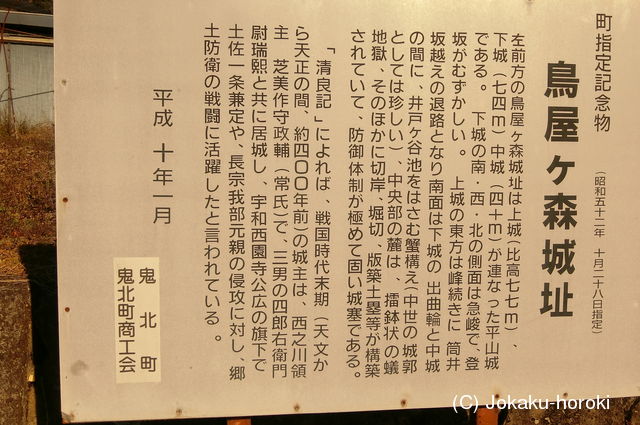 町指定記念物
鳥屋ヶ森城址
（昭和五十二年 十月二十八日指定）
左前方の鳥屋ヶ森城址は上城（比高七七ｍ）、
下城（七四ｍ）中城（四十ｍ）が連なった平山城
である。 下城の南・西・北の側面は急峻で、登
坂がむずかしい。 上城の東方は峰続きに 筒井
坂越えの退路となり南面は下城の 出曲輪と中城
の間に、井戸ヶ谷池をはさむ蟹構え（中世の城郭
としては珍しい）、中央部の麓は、擂鉢状の蟻
地獄、そのほかに切岸、堀切、版築土塁等が構築
されていて、防御体制が極めて固い城塞である。
「清良記」によれば、戦国時代末期（天文か
ら天正の間、約四〇〇年前）の城主は、西之川領
主 芝美作守政輔（常氏）で、三男の四郎右衛門
尉瑞熙と共に居城し、宇和西園寺公広の旗下で
土佐一条兼定や、長宗我部元親の侵攻に対し、郷
土防衛の戦闘に活躍したと言われている。
平成 十年一月
鬼北町
鬼北町商工会
(C) Jokaku-horoki